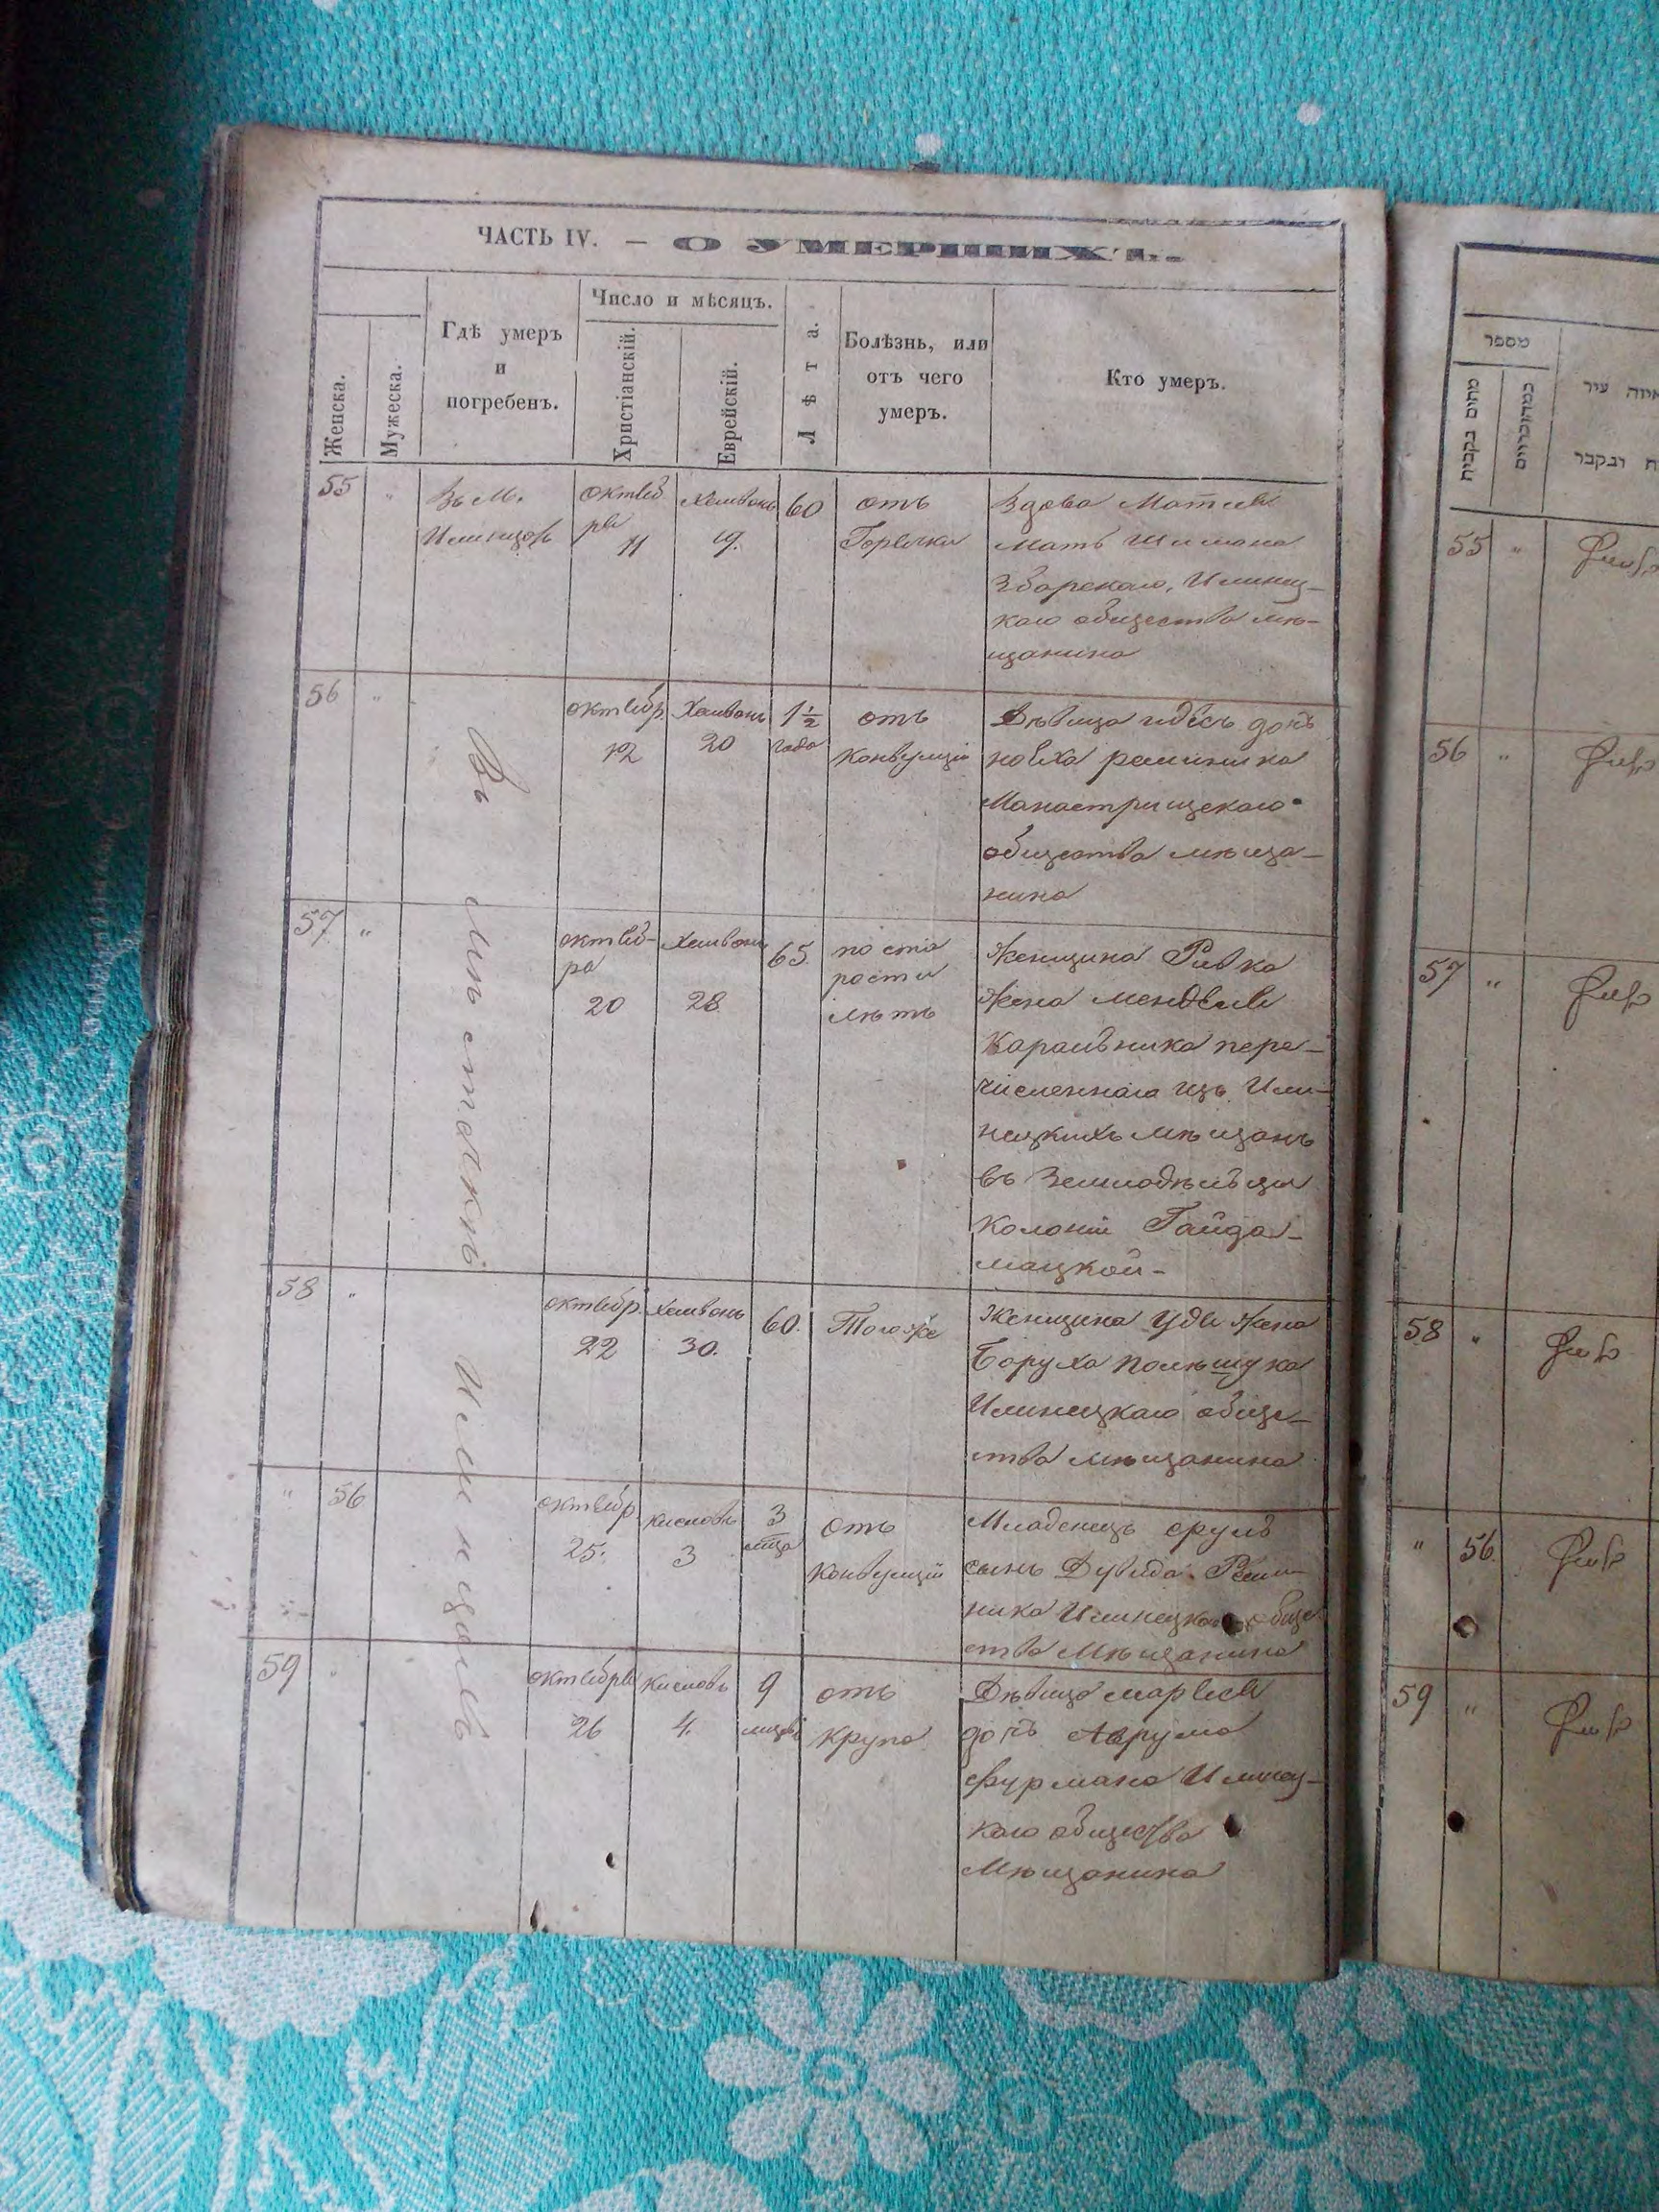 ЧАСТЬ IV. — О УМЕРШИХЪ.
Женска.
Мужеска.
Гдѣ умеръ
и
погребенъ.
Число и мѣсяцъ.
Христіанскій.
Еврейскій.
Лѣта.
Болѣзнь, или
отъ чего
умеръ.
Кто умеръ.
55 "
Въ М.
Илинцахъ
октяб
ря
11
Хешвонъ
19.
60
отъ
Горячки
Вдова Матля
мать Шимона
Зборскаго, Илинец-
каго общества мѣ-
щанина
56 "
Въ мѣстечкѣ Илинцахъ
октябр
12
Хешвонъ
20
1 1/2
года
отъ
Конвульцій
Дѣвица дочь
ноеха
Монастрищскаго
общества мѣща-
нина
57 "
октяб-
ря
20
Хешвонъ
28
65.
по ста
рости
лѣтъ
Женщина Ривка
жена менделя
Каралъника пере-
численнаго изъ Или-
нецкихъ мѣщанъ
въ Земледѣльцы
Колоніи Гайда-
мацкой-
58 "
октябр.
22
Хешвонъ
30.
60.
Тогоже
Женщина Удя жена
Боруха полѣщука
Илинецкаго обще-
ства мѣщанина
" 56
октябр
25.
кислевъ
3
3
мца
отъ
конвульцій
Младенецъ сруль
сынъ Дувида
ника Илинецкаго обще
ства Мѣщанина
59 "
октября
26
Кислевъ
4.
9
мцевъ
отъ
крупа
Дѣвица
дочь Аврума
Фурмана Илинец-
каго общества
Мѣщанина
מספר
55 "
56 "
57 "
58 "
" 56.
59 "